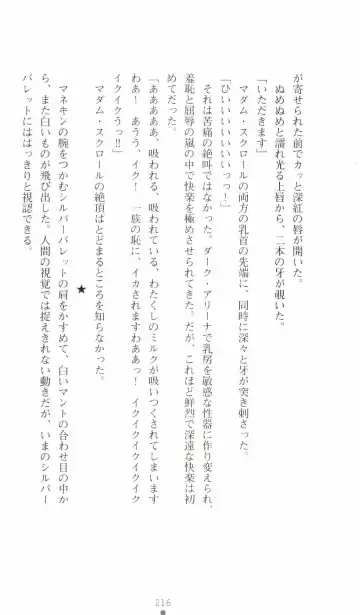 が寄せられた前でカッと深紅の唇が開いた。
ぬめぬめと濡れ光る上唇から、二本の牙が覗いた。
「いただきます」
マダム・スクロールの両方の乳首の先端に、同時に深々と牙が突き刺さった。
「ひいいいいいいいっっ！」
それは苦痛の絶叫ではなかった。ダーク・アリーナで乳房を敏感な性器に作り変えられ、
羞恥と屈辱の嵐の中で快楽を極めさせられてきた。だが、これほど鮮烈で深遠な快楽は初
めてだった。
「あああああ、吸われる、吸われている、わたくしのミルクが吸いつくされてしまいます
わあ！　あうう、イク！　一族の恥に、イカされますわああっ！　イクイクイクイクイク
イクイクうっ‼」
マダム・スクロールの絶頂はとどまるところを知らなかった。
★
マネキンの腕をつかむシルバーバレットの肩をかすめて、白いマントの合わせ目の中か
ら、また白いものが飛び出した。人間の視覚では捉えきれない動きだが、いまのシルバー
バレットにははっきりと視認できる。
216